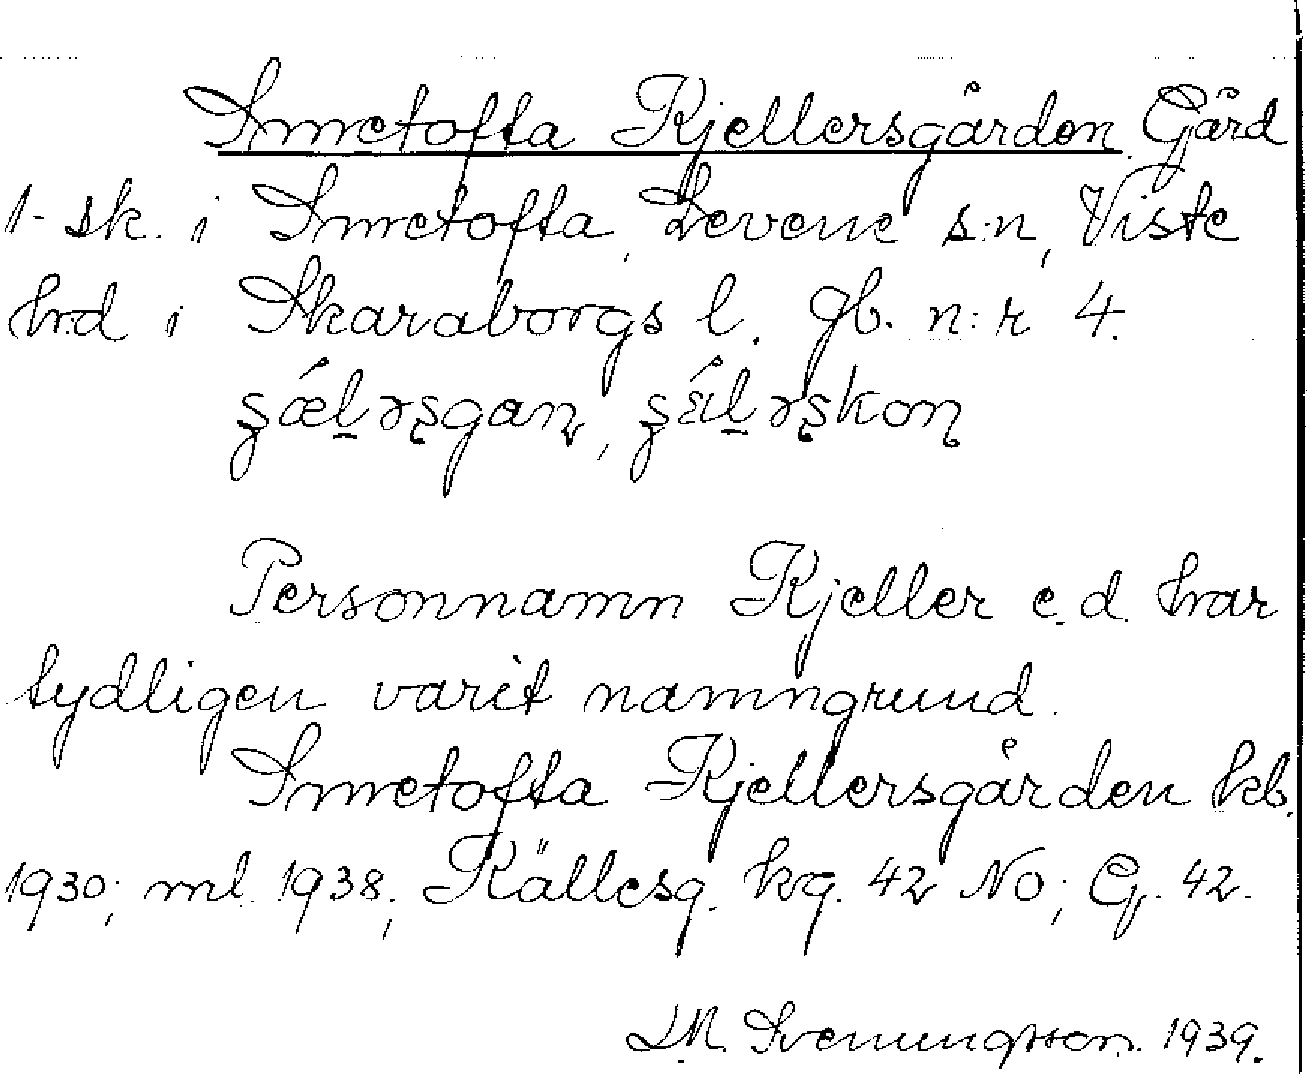 Smetofta Kjellersgården Gård
1-sk. i Smetofta, Levene s:n, Viste
hrd i Skaraborgs l. gb. n:r 4.
Personnamn Kjeller e.d. har
tydligen varit namngrund.
Smetofta Kjellersgården kb.
1930; ml. 1938; Källesg. kg. 42 NO; G. 42.
Svenungsson. 1939.